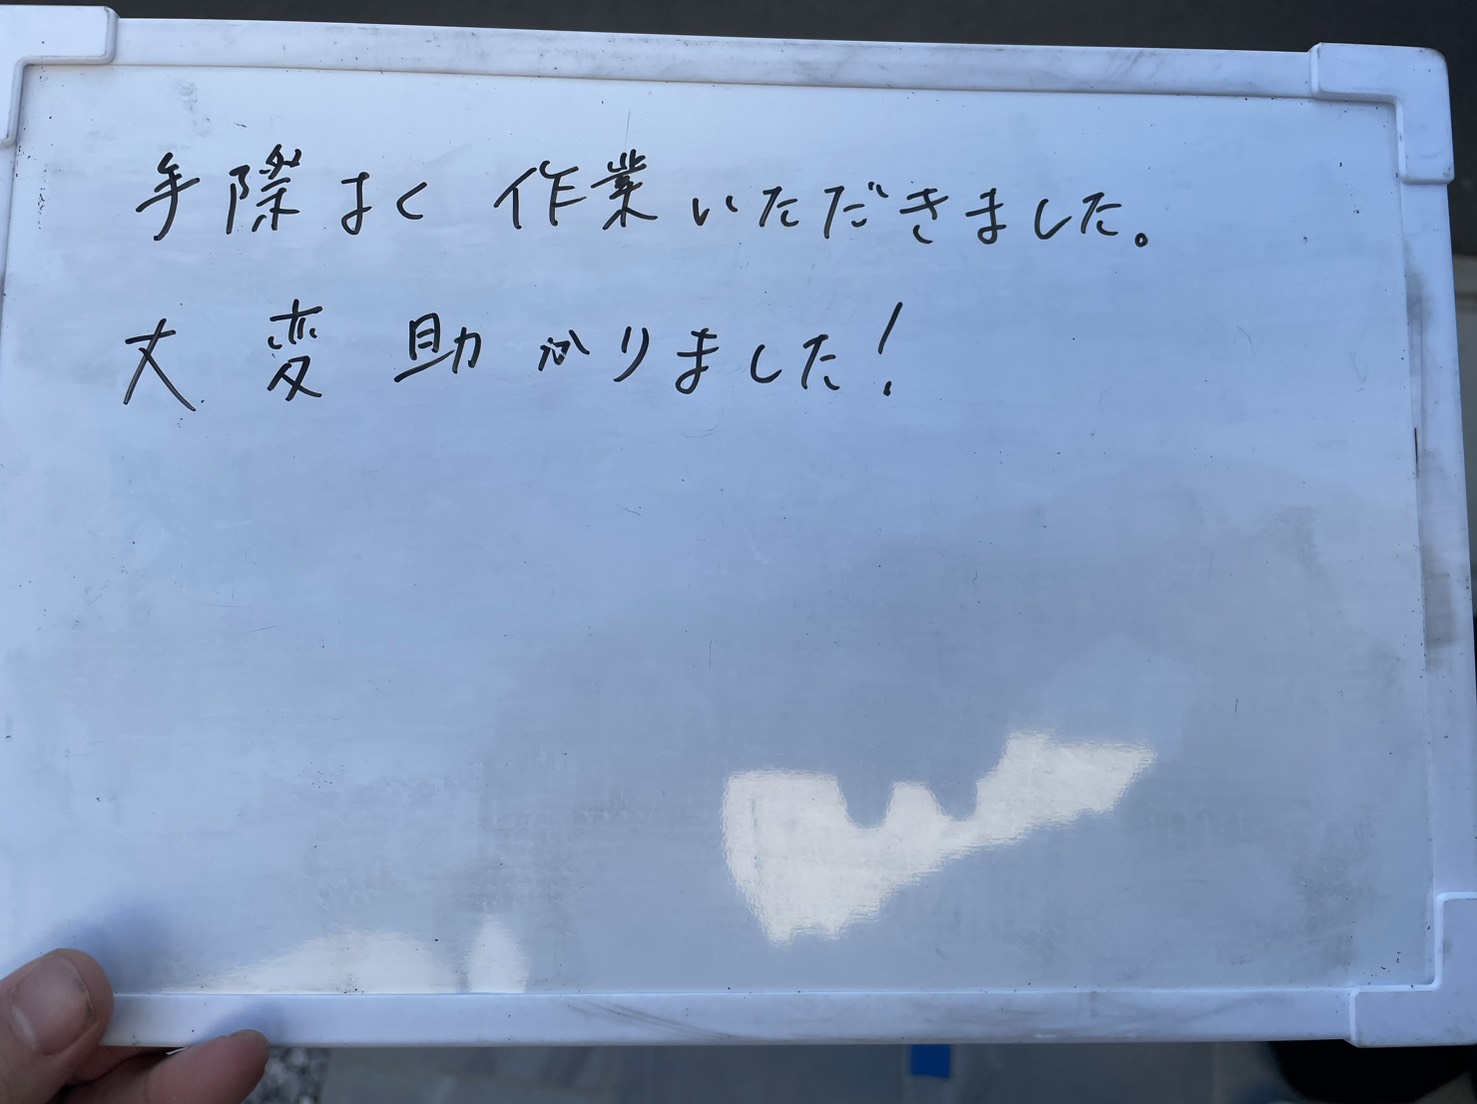 手際よく作業いただきました。
大変助かりました!